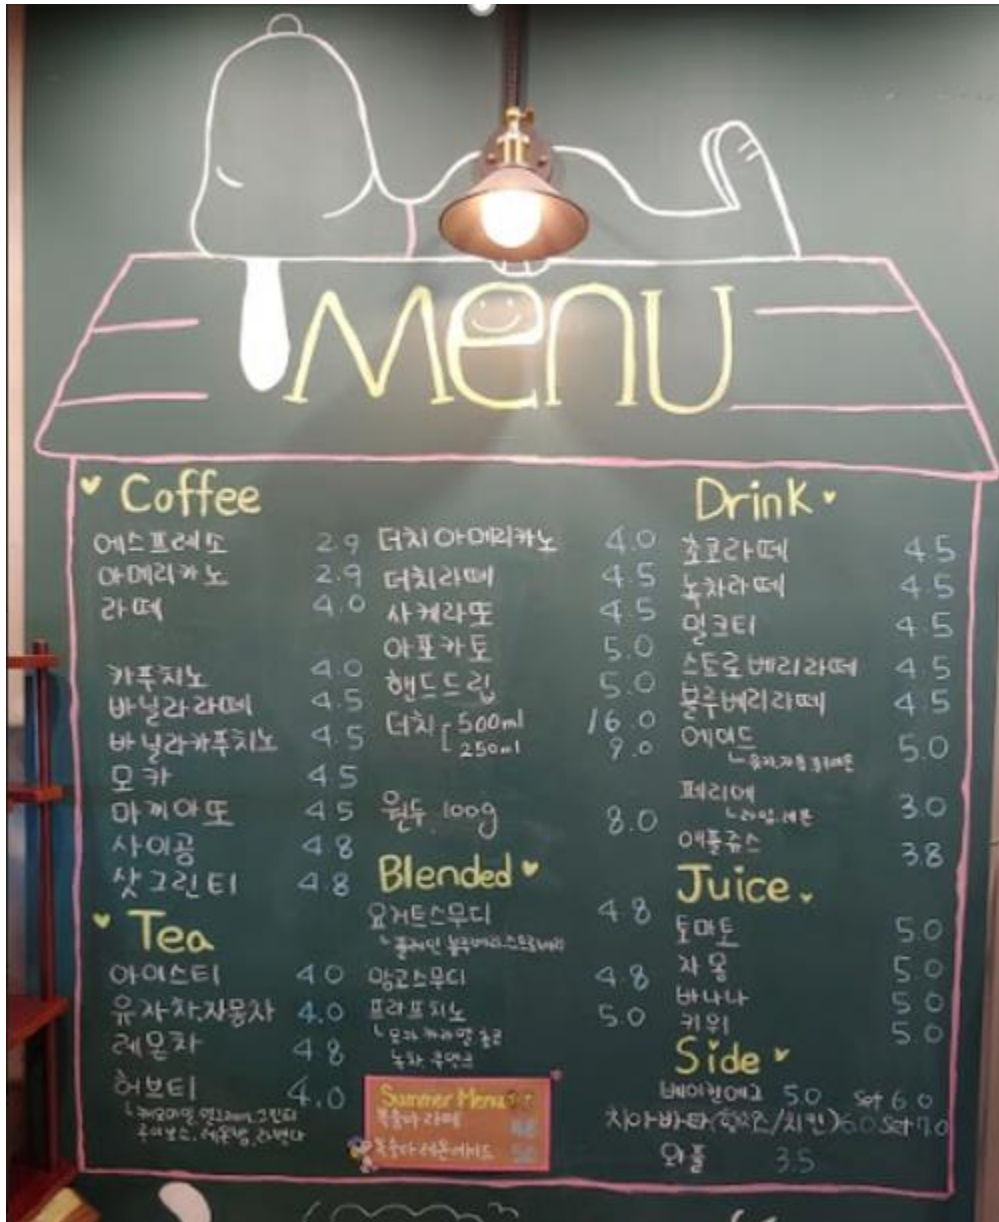 MENU
Coffee
에스프레소 2.9
아메리카노 2.9
라떼 4.0
카푸치노 4.0
바닐라라떼 4.5
바닐라카푸치노 4.5
모카 4.5
마끼아또 4.5
사이공 4.8
샷그린티 4.8
Tea
아이스티 4.0
유자차.자몽차 4.0
레몬차 4.8
허브티 4.0
더치아메리카노 4.0
더치라떼 4.5
사케라또 4.5
아포카토 5.0
핸드드립 5.0
더치 [ 500ml 16.0
250ml 9.0
원두 100g 8.0
Blended
요거트스무디 4.8
플레인 블루베리.스트로베리
망고스무디 4.8
프라프치노 5.0
모카 카라멜 초코
녹차.쿠앤크
Summer Menu
복숭아 라떼
복숭아 레몬에이드
Drink
초코라떼 4.5
녹차라떼 4.5
밀크티 4.5
스트로베리라떼 4.5
블루베리라떼 4.5
에이드 5.0
페리에 3.0
라임.레몬
애플쥬스 3.8
Juice
토마토 5.0
자몽 5.0
바나나 5.0
키위 5.0
Side
베이컨에그 5.0 Set 6.0
치아바타( /치킨) 6.0 Set 7.0
와플 3.5